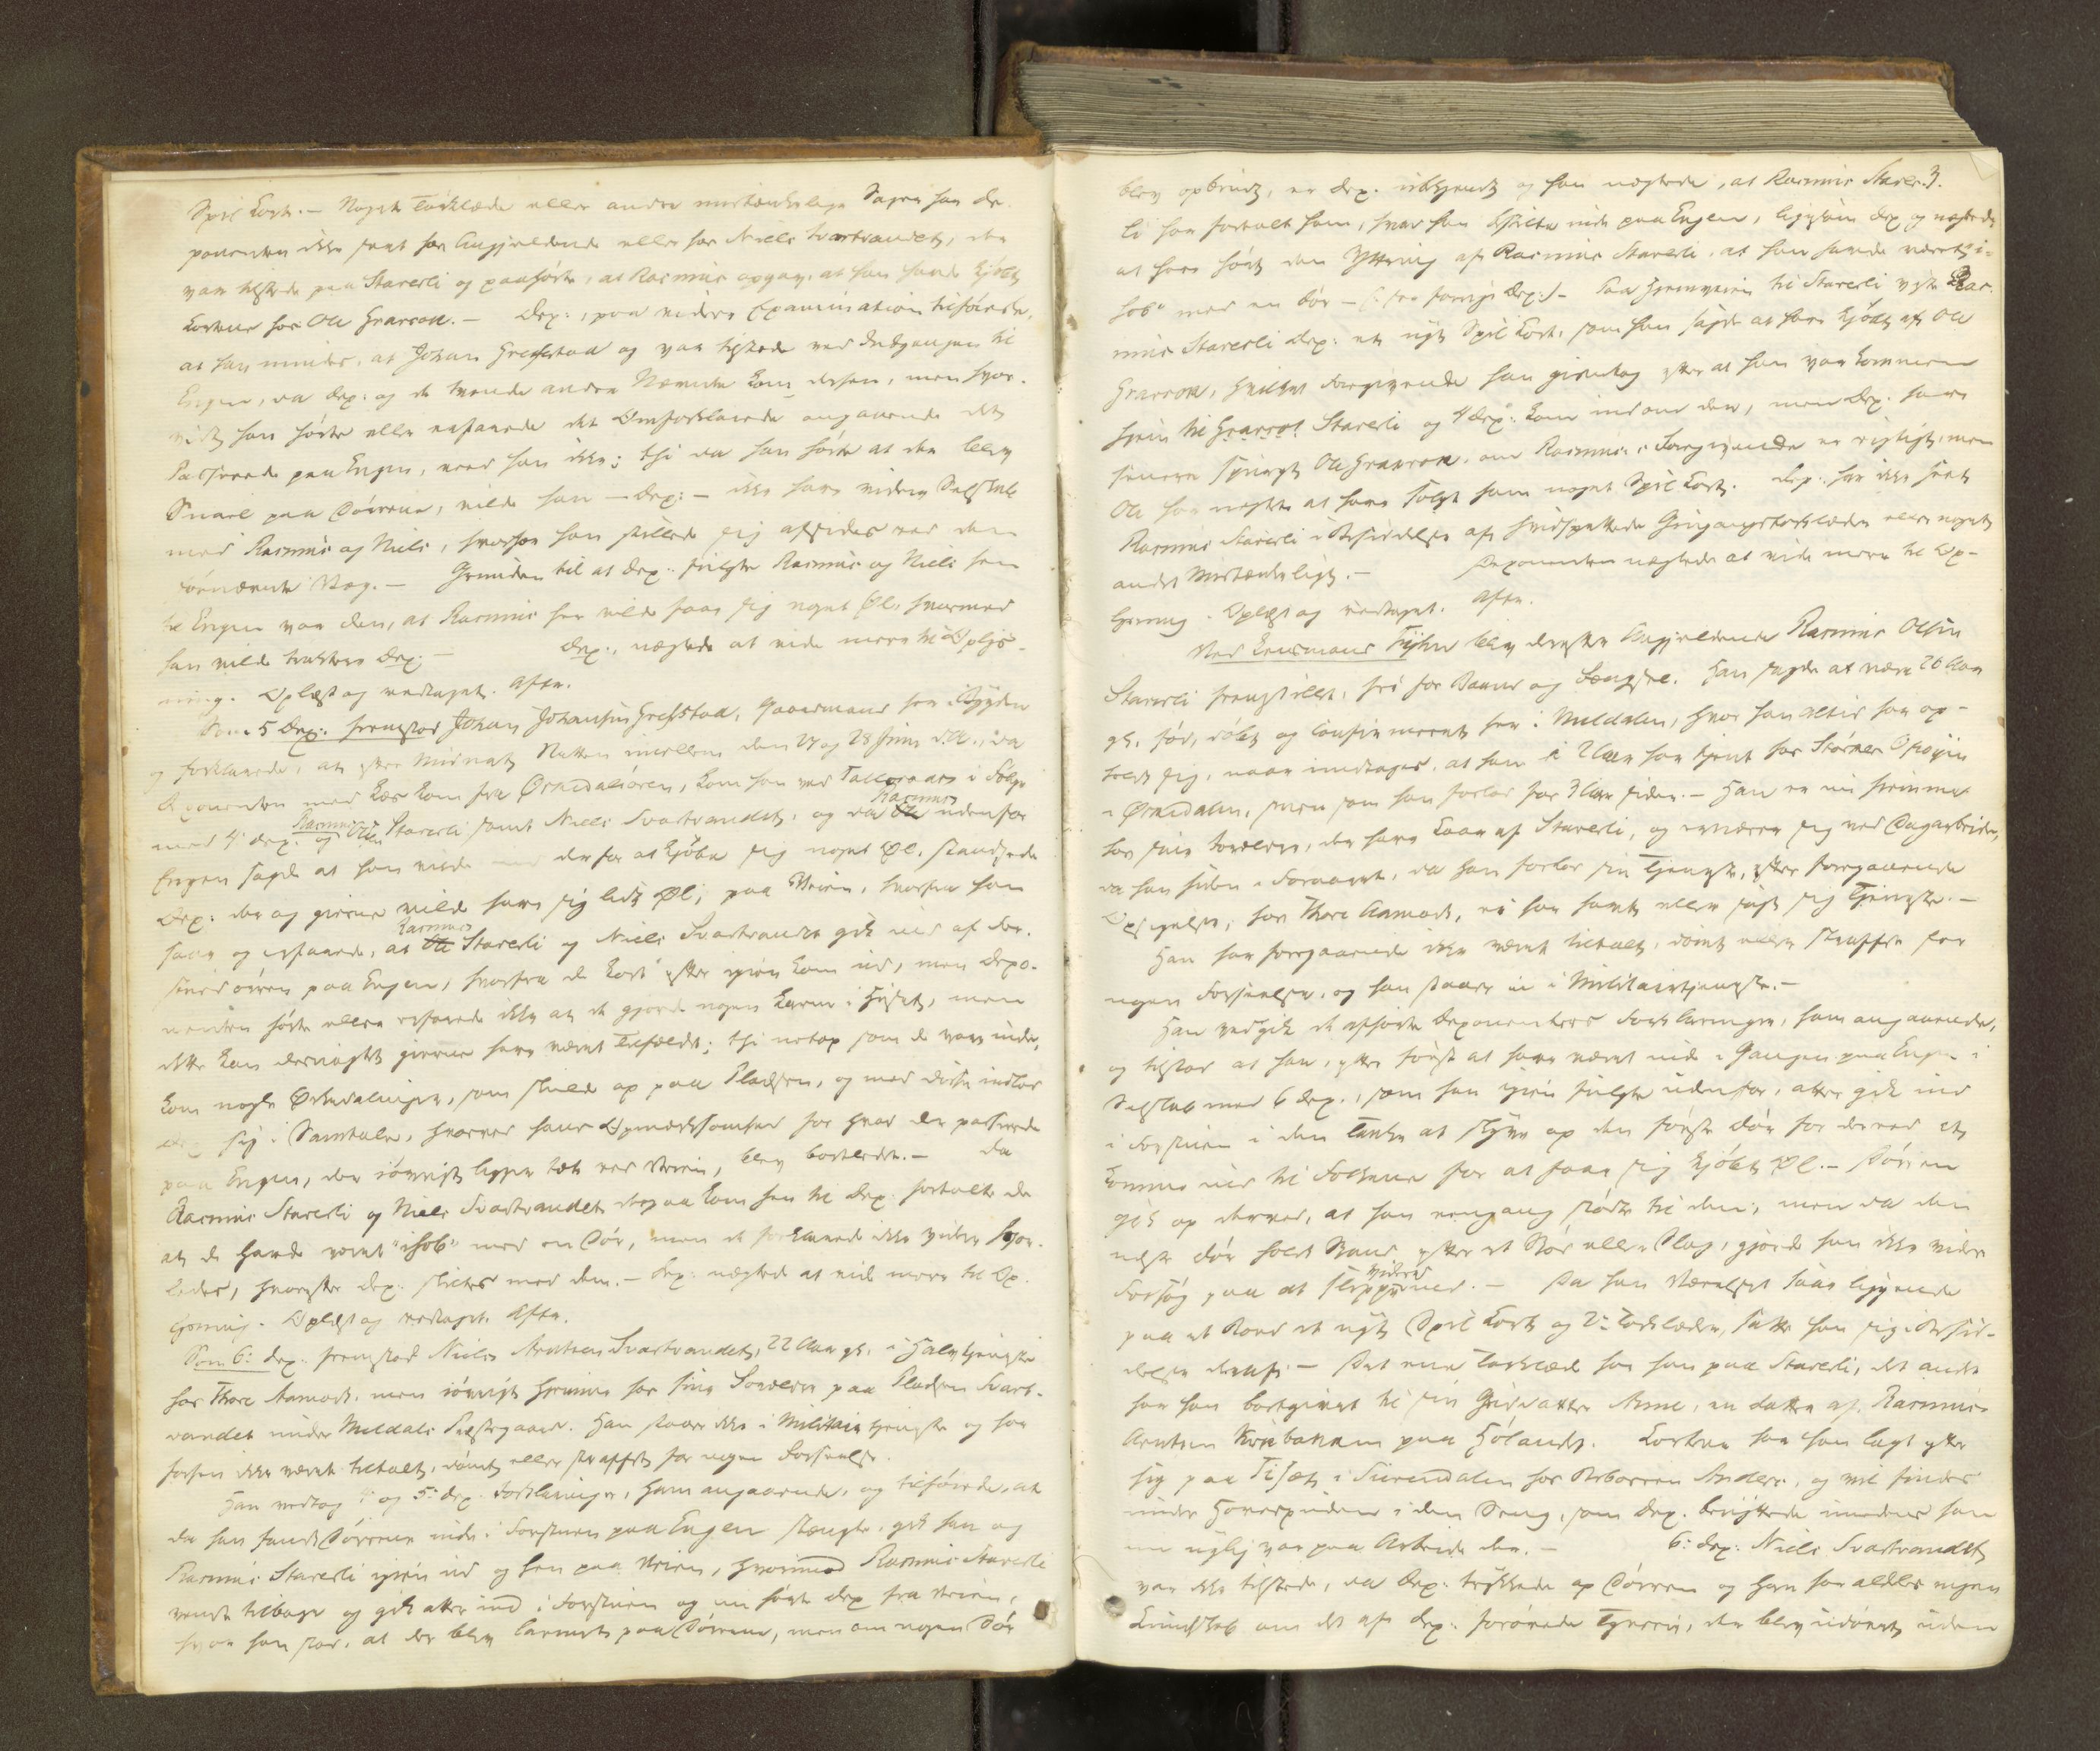 Spil Kort. — Noget Tørklæde eller andre mistænkelige Sager har De-
ponenten ikke seet hos Angjeldende eller hos Niels Svartvandet, der
var tilstede paa Starerli og paahørte, at Rasmus opgav, at han havde kjøbt
Kortene hos Ole Grarrok. — Dep:, paa videre Examination tilføiede,
at han mindes, at Johan Grefstad og var tilstede ved Indgangen til
Engen, da Dep: og de tvende andre Nævnte kom derhen, men hvor-
vidt han hørte eller erfarede det Omforklarede angaaende det
Passerede paa Engen, veed han ikke; thi da han hørte at der blev
Smæl paa Dørene, vilde han — Dep: — ikke have videre Selskab
med Rasmus og Niels, hvorfor han skillede sig afsides ved den
førnævnte Væg. — Grunden til at Dep: fulgte Rasmus og Niels hen
til Engen var den, at Rasmus her vilde faae sig noget Øl, hvormed
han vilde traktere Dep: — Dep:, nægtede at vide mere til Oplys-
ning. Oplæst og vedtaget. Aftr.
Som 5 Dep: fremstod Johan Johansen Grefstad, Gaardmand her i Bygden
og forklarede, at efter Midnat Natten imellem den 27 og 28 Juni d.A., da
Deponenten med Læs kom fra Ørkedalsøren, kom han ved Tallegaars i Følge
med 4de dep: og Rasmus Olsen Starerli samt Niels Svartvandet, og da Rasmus udenfor
Engen sagde at han vilde ind der for at kjøbe sig noget Øl, standsede
Dep: der og gjerne vilde have sig lidt Øl, paa Veien, hvorfra han
saae og erfarede, at Rasmus Starerli og Niels Svartvandet gik ind af For-
stuedøren paa Engen, hvorfra de kort efter igjen kom ud, men Depo-
nenten hørte eller erfarede ikke at de gjorde nogen Larm i Huset, men
dette kan desuagtet gjerne have været Tilfældet; thi netop som de vare inde,
kom nogle Ørkedalinger, som skulde op paa Pladsen, og med disse indlod
Dep: sig i Samtale, hvorved hans Opmærksomhed for hvad der passerede
paa Engen, der iøvrigt ligger tæt ved Veien, blev bortledet. — Da
Rasmus Starerli og Niels Svartvandet derpaa kom hen til Dep: fortalte de
at de havde været "ihob" med en Dør, men de forklarede ikke videre hvor-
ledes, hvorefter Dep: skiltes med dem. — Dep: nægtede at vide mere til Op-
lysning. Oplæst og vedtaget. Aftr.
Som 6: dep: fremstod Niels Arntsen Svartvandet, 22 Aar gl., i halv Tjeneste
hos Thore Aamodt, men iøvrigt hjemme hos sine Forældre paa Pladsen Svart-
vandet under Meldals Præstegaard. Han staaer ikke i Militair tjeneste og har
forhen ikke været tiltalt, dømt eller straffet for nogen Forseelse.
Han vedtog 4: og 5: dep: Forklaringer, ham angaaende, og tilføiede, at
da han fandt Dørene inde i Forstuen paa Engen stængte, gik han og
Rasmus Starerli igjen ud og hen paa Veien, hvorimod Rasmus Starerli
vendte tilbage og gik atter ind i Forstuen og nu hørte dep fra Veien,
hvor han stod, at der blev larmet paa Dørene, men om nogen Dør
3.
blev opbrudt, er dep. ubekjendt og han nægtede, at Rasmus Starer-
li har fortalt ham, hvad han bestilte inde paa Engen, ligesom dep og nægtede
at have hørt den Yttring af Rasmus Starerli, at han havde været "i-
hob" med en Dør — (: see forrige Dep:) — Paa Hjemveien til Starerli viste Ras-
mus Starerli dep: et nyt Spil Kort, som han sagde at have kjøbt af Ole
Grarrok, hvilket Foregivende han gjentog efter at han var kommen
hjem til Grarrot Starerli og 4 dep: kom ind om den, men dep: have
senere spurgt Ole Grarrok, om Rasmus's Foregivende er rigtigt, men
Ole har nægtet at have solgt ham noget Spil Kort. Dep: har ikke seet
Rasmus Starerli i Besiddelse af hvidspættede Gingangstørklæder eller noget
andet Mistænkeligt. — Deponenten nægtede at vide mere til Op-
lysning. Oplæst og vedtaget. Aftr.
Ved Lensmand Fyhn blev derefter Angjeldende Rasmus Olsen
Starerli fremstillet, fri for Baand og Fængsel. Han sagde at være 26 Aar
gl., fød, døbt og Confirmeret her i Meldalen, hvor han altid har op-
holdt sig, naar undtages, at han i 2 Aar har tjent hos Størker Ofsøyen
i Ørkedalen, hvem som han forlod for 3 Aar siden. — Han er nu hjemme
hos sine Forældre, der have Laan af Starerli, og ernærer sig ved Dagarbeide,
da han siden i Foraaret, da han forlod sin Tjeneste, efter foregaaende
Opsigelse, hos Thore Aamodt, ei har havt eller søgt sig Tjeneste. —
Han har foregaaende ikke været tiltalt, dømt eller straffet for
nogen Forseelse, og han staaer ei i Militairtjeneste. —
Han vedgik de afhørte Deponenters Forklaringer, ham angaaende,
og tilstod at han, efter først at have været inde i Gangen paa Engen i
Selskab med 6 dep., som han igjen fulgte udenfor, atter gik ind
i Forstuen i den Tanke at skyve op den første Dør for derved at
komme ind til Folkene for at faae sig kjøbt Øl. — Døren
gik op derved, at han engang stødte til den; men da den
næste Dør holdt Stand efter et Stød eller Slag, gjorde han ikke videre
Forsøg paa at slippe videre ind. — Da han i Værelset saae liggende
paa et Bord et nyt Spil Kort og 2: Tørklæder, satte han sig i Besid-
delse deraf. — Det ene Tørklæde har han paa Starerli, det andet
har han bortgivet til sin Guddatter Anne, en datter af Rasmus
Arntsen Kvibakken paa Hølandet. Kortene har han lagt efter
sig paa Tisæt i Surendalen hos Beboeren Anders, og vil findes
under Hovedpuden i den Seng, som Dep. benyttede imedens han
nu nylig var paa Arbeide der. — 6: dep: Niels Svartvandet
var ikke tilstede, da Dep: trykkede op Døren og han har aldeles ingen
Kundskab om det af dep: forøvede Tyveri, der blev udøvet uden